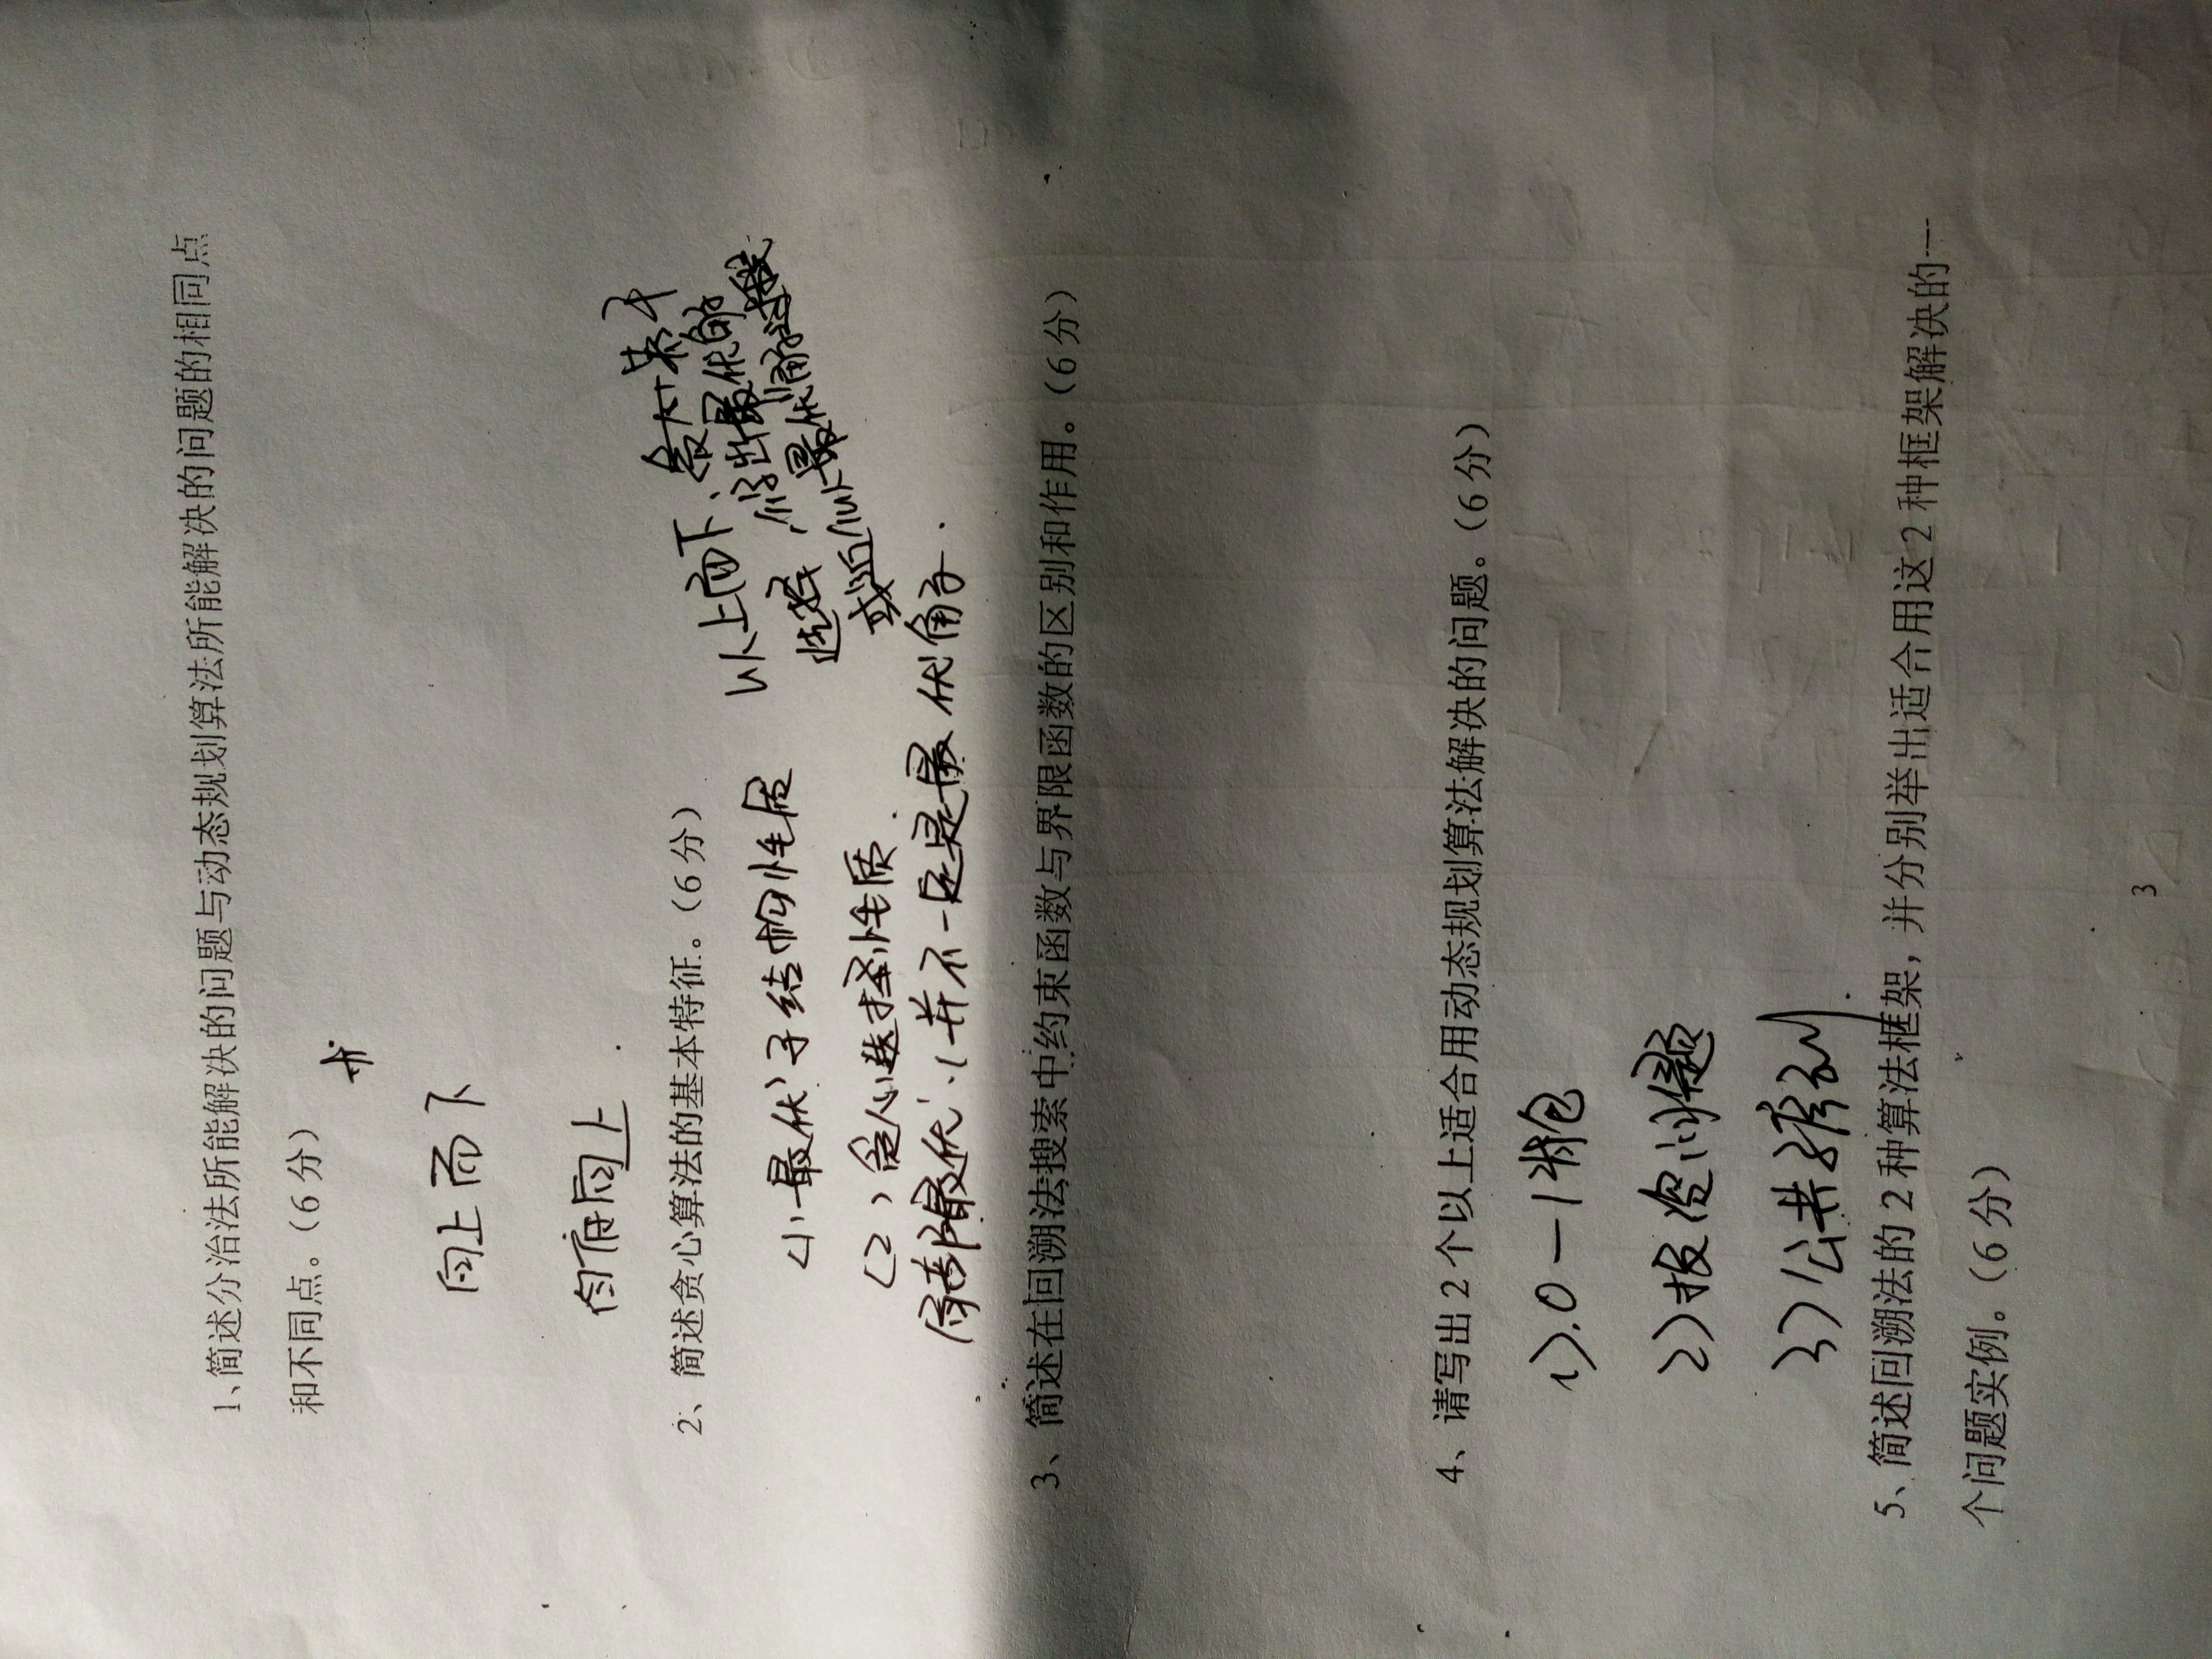 1、简述分治法所能解决的问题与动态规划算法所能解决的问题的相同点
和不同点。（6 分）
向上而下
自底向上.
2、简述贪心算法的基本特征。（6 分）
以上而下、贪心
选择，得出最优解
或近似最优解过程
(1) 最优子结构性质
(2) 贪心选择性质.
局部最优,并不一定是最优解.
3、简述在回溯法搜索中约束函数与界限函数的区别和作用。（6 分）
4、请写出 2 个以上适合用动态规划算法解决的问题。（6 分）
1).0-1背包
2)投资问题
3)公共子序列.
5、简述回溯法的 2 种算法框架，并分别举出适合用这 2 种框架解决的一
个问题实例。（6 分）
3